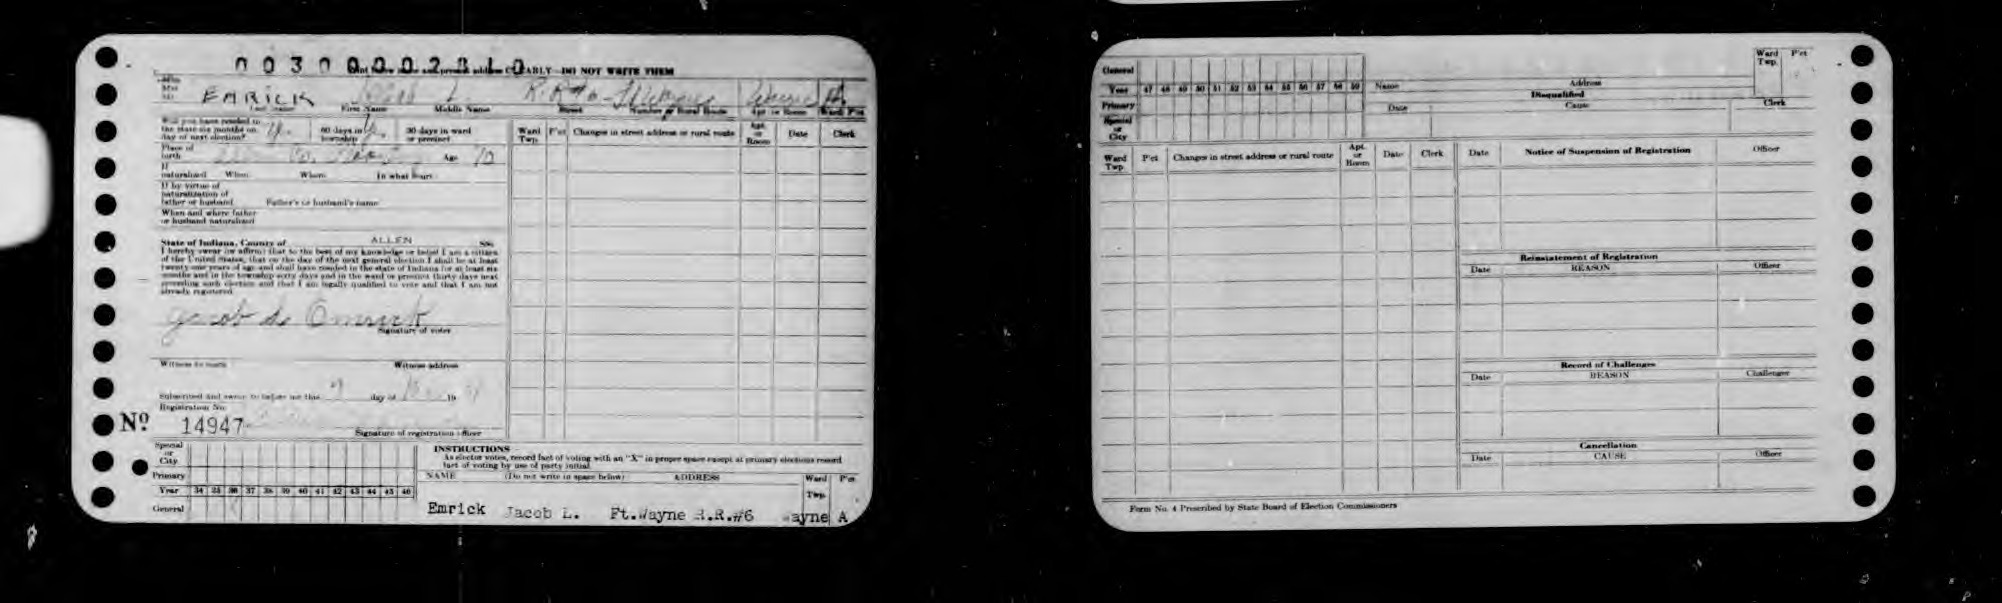 003000023
Print Name and present address CLEARLY—DO NOT WRITE THEM
EMRICK L. R.R. #6 Wayne A
Last Name First Name Middle Name Street Number or Rural Route Apt. or Room Ward P'ct
Will you have resided in the state six months on day of next election? 60 days in township 30 days in ward or precinct
Place of birth Age
If naturalized When Where In what court
If by virtue of naturalization of father or husband Father's or husband's name
When and where father or husband naturalized
State of Indiana, County of ALLEN SS:
I hereby swear (or affirm) that to the best of my knowledge or belief I am a citizen
of the United States, that on the day of the next general election I shall be at least
twenty-one years of age and shall have resided in the state of Indiana for at least six
months and in the township sixty days and in the ward or precinct thirty days next
preceding such election and that I am legally qualified to vote and that I am not
already registered.
Jacob L. Emrick
Signature of voter
Witness to mark Witness address
Subscribed and sworn to before me this 9 day of 19
Registration No.
Nº 14947
Signature of registration officer
Ward Twp. P'ct Changes in street address or rural route Apt. or Room Date Clerk
Special or City
Primary
Year 34 35 36 37 38 39 40 41 42 43 44 45 46
General
INSTRUCTIONS
As elector votes, record fact of voting with an "X" in proper space except at primary elections record
fact of voting by use of party initial.
NAME (Do not write in space below) ADDRESS Ward Twp. P'ct
Emrick Jacob L. Ft.Wayne R.R.#6 Wayne A
General
Year 47 48 49 50 51 52 53 54 55 56 57 58 59
Primary
Special or City
Name Address Ward Twp. P'ct
Disqualified
Date Cause Clerk
Ward Twp. P'ct Changes in street address or rural route Apt. or Room Date Clerk
Date Notice of Suspension of Registration Officer
Reinstatement of Registration
Date REASON Officer
Record of Challenges
Date REASON Challenger
Cancellation
Date CAUSE Officer
Form No. 4 Prescribed by State Board of Election Commissioners